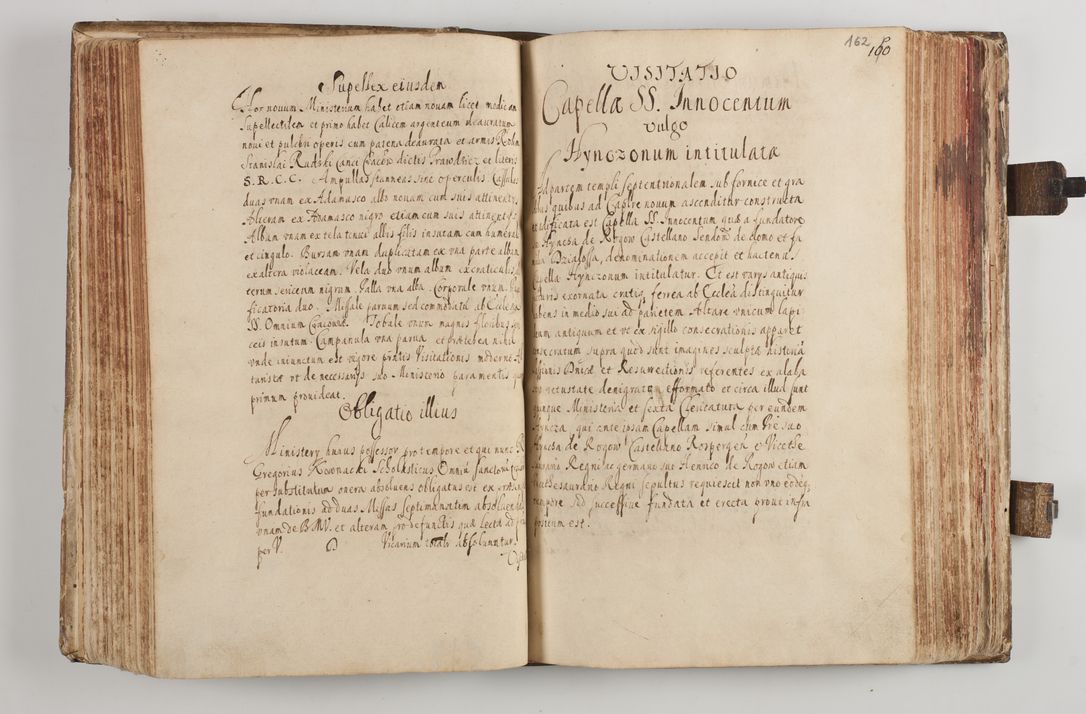 Supellex eiusdem
Hoc nouum Ministerium habet etiam nouam licet modicam
Supellectilem et primo habet Calicem argenteum deauratum
noui et pulchri operis cum patena deaurata et armis
Stanislai Rudski Canci Cracov dictis Prawdzicz et literis
S. R. C. C. Ampullas stanneas sine operculis. Cassulas
duas vnam ex Adamasco albo nouam cum suis attinentys
Alteram ex Adamasco nigro etiam cum suis attinentys
Albam vnam ex tela tenui albis filis insutam cum humerali
et cingulo. Bursam vnam duplicatam ex vna parte albam
ex altera violaceam. Vela duo vnum album ex craticulis
terum sericeum nigrum. Palla vna alba. Corporale vnum.
ficatoria duo. Missale paruum sed commodatū ab Ecclesia
SS. Omnium Cracouiæ. Tobale vnum magnis floribus
ceis insutum. Campanula vna parua et præterea nihil
vnde iniunctum est vigore præntis Visitationis moderno
taristæ vt de necessarys suo Ministerio paramentis
primum prouideat.
Obligatio illius
Ministery huius possessor pro tempore et qui nunc
Gregorius Kownacki Scholasticus Omniū Sanctorū
per substitutum onera absoluens obligatus est ex
fundationis ad duas Missas septimanatim absoluendas
vnam de BMV. et alteram pro defunctis quæ lecta ad
per V. Vicarium totalr absoluuntur.
162
160
VISITATIO
Capellæ SS. Innocentum
vulgo
Hynczonum intitulatæ
Ad partem templi septentrionalem sub fornice et gra
dibus quibus ad Caplre nouum ascenditur constructa
et ædificata est Capella SS. Innocentum quæ a fundatore
Hyncza de Rogow Castellano Sendom de domo et fa
milia Działossa, denominationem accepit et hactenus
Capella Hynczonum intitulatur. Et est varys antiquis
picturis exornata cratis ferrea ab Ecclesia distinguitur
habens in medio sui ad parietem Altare vnicum lapi
deum antiquum et vt ex sigillo consecrationis apparet
consecratum supra quod sunt imagines sculptæ historiā
Passionis Dnicæ et Resurrectionis referentes ex alaba
stro vetustate denigratum efformatæ et circa illud sunt
quinque Ministeria et sexta Clericatura per eundem
Hyncza qui ante ipsam Capellam simul cum Pre suo
Hyncza de Rogow Castellano Rosperżen et Vicethe
saurario Regni ac germano suo Henrico de Rogow etiam
Vicethesaurario Regni sepultus requiescit non vno eodeq
tempore sed successiue fundata et erecta prout infra
positum est.